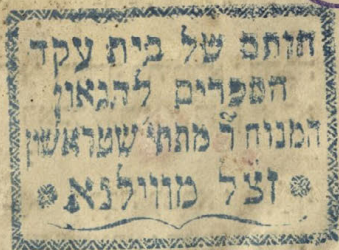 חותם של בית עקד
הספרים להגאון
המנוח ר' מתתי' שטראשון
זצ"ל מווילנא